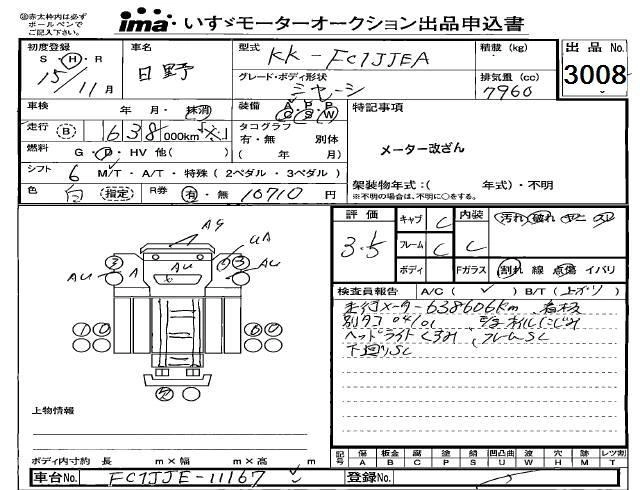 ※赤太枠内は必ず
ボールペンで
ご記入下さい。
ima いすゞモーターオークション出品申込書
初度登録 車名 型式 積載(kg) 出品No.
S・H・R
15/11月 日野 KK-FC1JJEA 3008
グレード・ボディ形状 排気量(cc)
シャーシ 7960
車検 年 月・抹消 装備 A・P・P C・S・W 特記事項
走行 B 638 000km タコグラフ
有・無 別体
燃料 G・D・HV 他( ) ( 年 月) メーター改ざん
シフト 6 M/T・A/T・特殊(2ペダル・3ペダル)
色 白 指定 R券 有・無 10710円 架装物年式:( 年式)・不明
※不明の場合は、不明に○をする。
評価 キャブ C 内装 汚れ 破れ
3.5 フレーム C C
ボディ Fガラス 割れ 線 点傷 イバリ
AG
UA
AU A AU AU
検査員報告 A/C( ✓ ) B/T(上ガリ)
走行メーター638606km 看板
別タコ
ヘッドライトくすみ、フレームSC
下廻りSC
上物情報
ボディ内寸約 長 m×幅 m×高 m
記号 傷 板金 腐 塗 錆 凹凸曲 波 穴 跡 レツ割
A B C P S U W H M T
車台No. FC1JJE-11167 登録No.